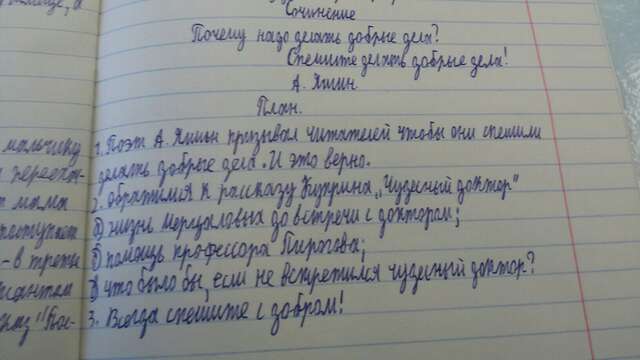 Сочинение
Почему надо делать добрые дела?
Спешите делать добрые дела!
А. Яшин
План.
1. Поэт А. Яшин призывал читателей чтобы они спешили
делать добрые дела. И это верно.
2. обратимся к рассказу Куприна „Чудесный доктор"
а) жизнь мерцаловых до встречи с доктором;
б) помощь профессора Пирогова;
в) что было бы, если не встретился чудесный доктор?
3. Всегда спешите с добром!
мальчику
мама
поступком
- в треть